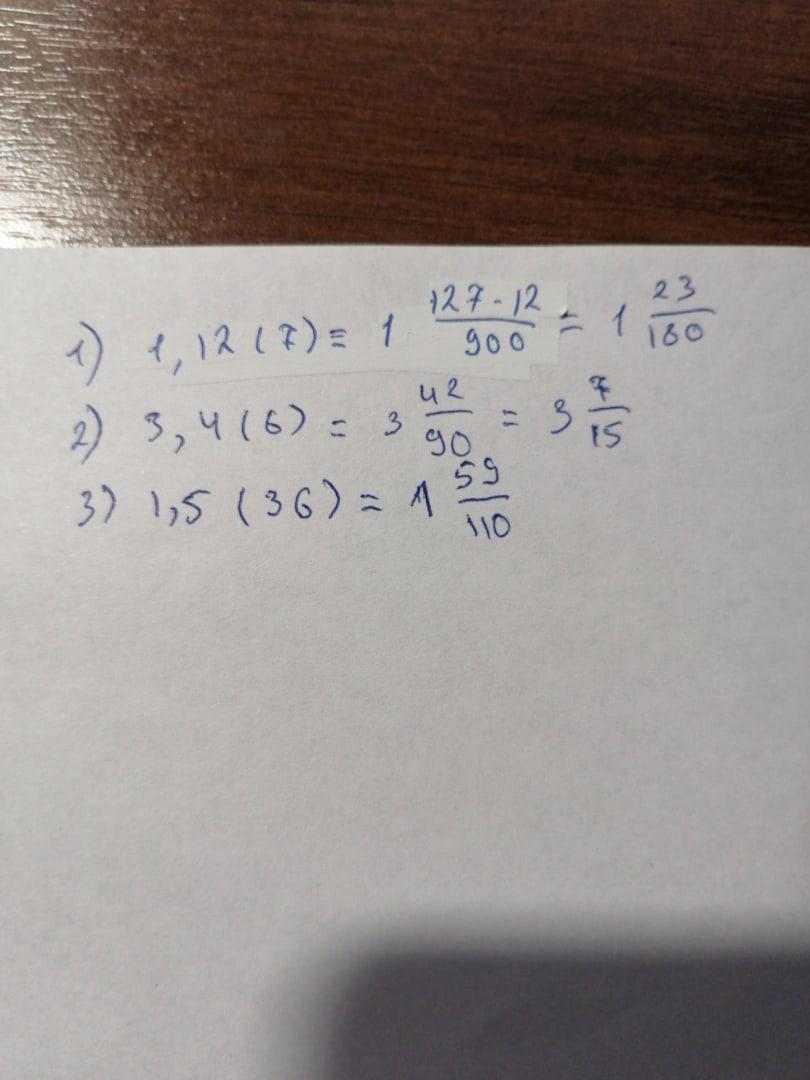 1) 1,12(7) = 1 127-12/900 = 1 23/180
2) 3,4(6) = 3 42/90 = 3 7/15
3) 1,5(36) = 1 59/110